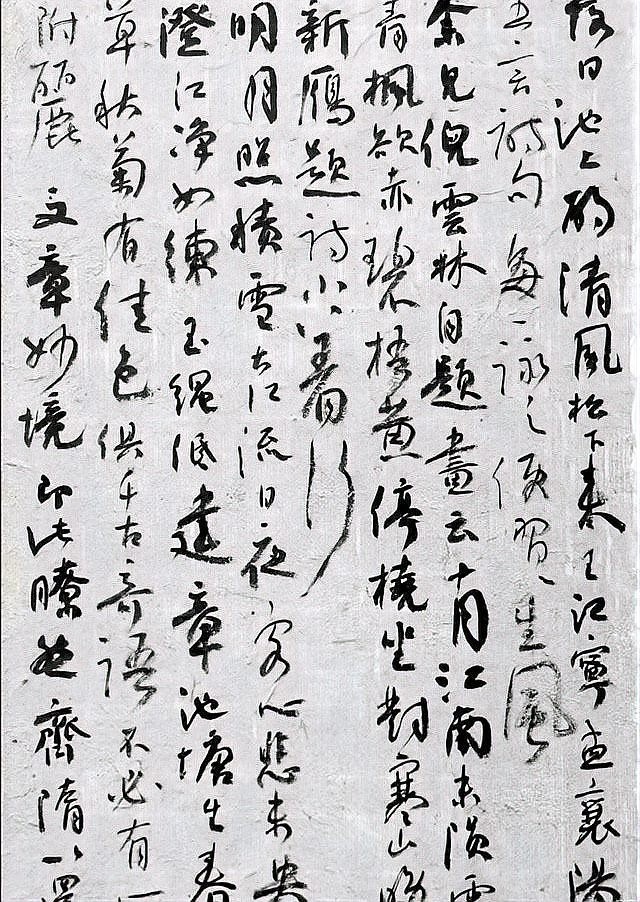 落日池上酌清風松下來王江寧孟襄陽
五言詩句每一詠之便習〻生風
余見倪雲林自題畫云十月江南未隕霜
青楓欲赤碧梧黃停橈坐對寒山晚
新鴈題詩小着行
明月照積雪大江流日夜客心悲未央
澄江淨如練玉繩低建章池塘生春
草秋菊有佳色俱千古奇語不必有
附麗文章妙境即此瞭然齊隋以還